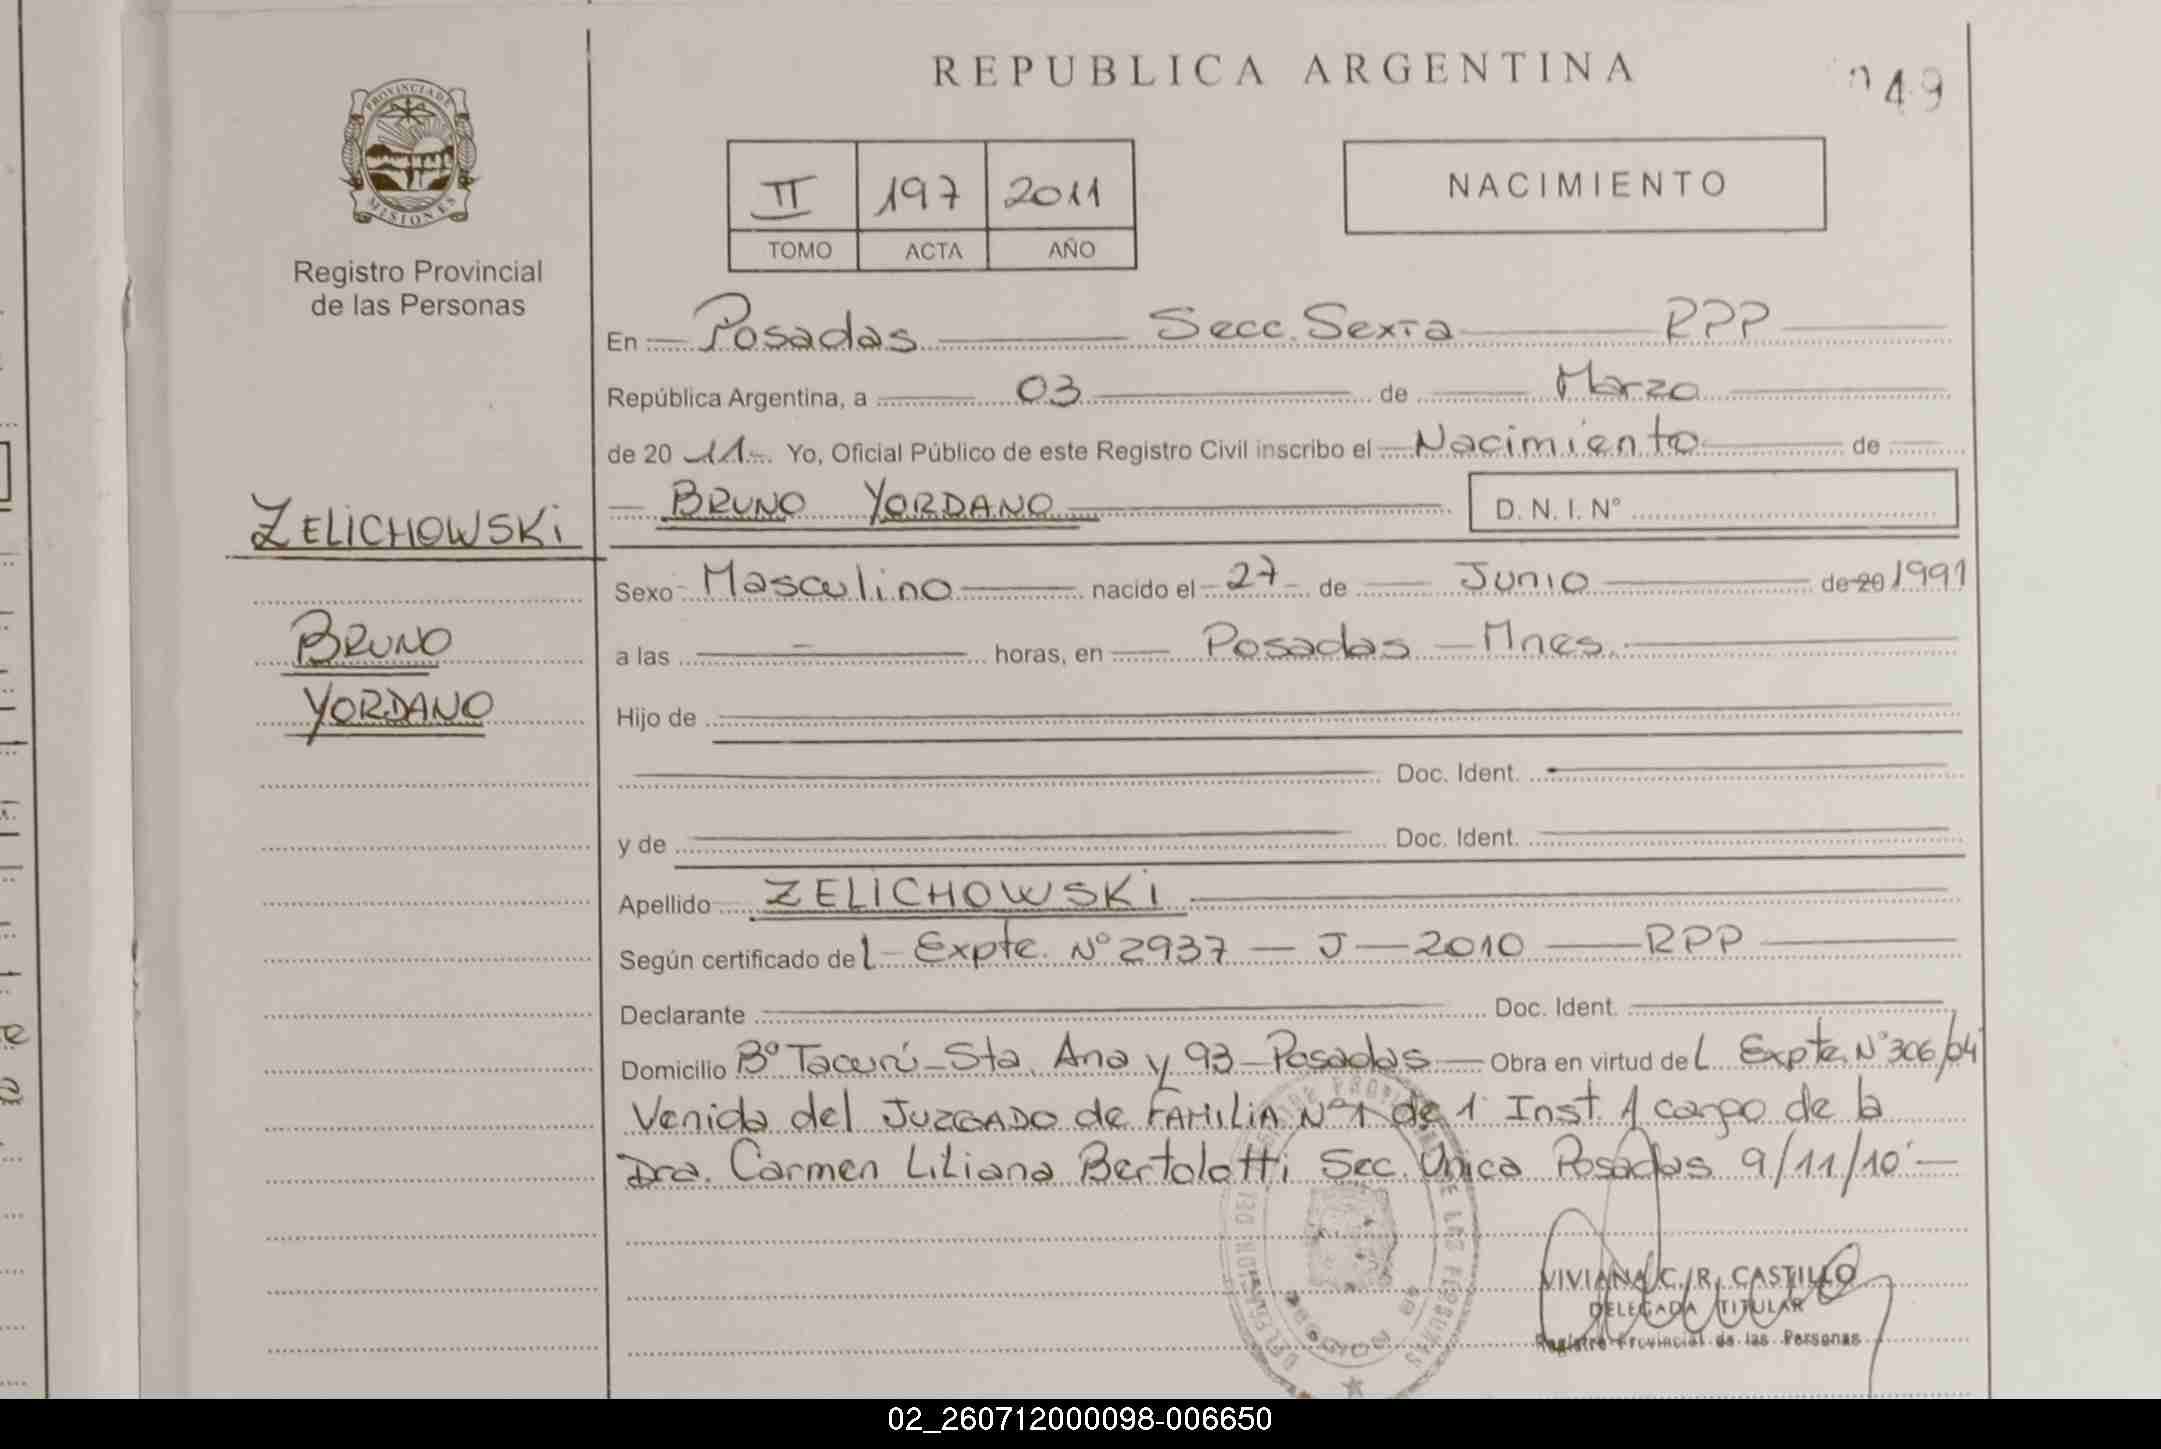 REPUBLICA ARGENTINA
49
PROVINCIA DE
MISIONES
Registro Provincial
de las Personas
II 197 2011
TOMO ACTA AÑO
NACIMIENTO
En Posadas Secc. Sexta RPP
República Argentina, a 03 de Marzo
de 20 11 Yo, Oficial Público de este Registro Civil inscribo el Nacimiento de
BRUNO YORDANO D. N. I. N°
ZELICHOWSKI
BRUNO
YORDANO
Sexo Masculino nacido el 27 de Junio de 20 1991
a las — horas, en Posadas – Mnes.
Hijo de
Doc. Ident.
y de Doc. Ident.
Apellido ZELICHOWSKI
Según certificado del Expte. N° 2937 – J – 2010 – RPP
Declarante Doc. Ident.
Domicilio B° Tacurú – Sta. Ana y 93 – Posadas – Obra en virtud del Expte. N° 306/04
Venido del JUZGADO de FAMILIA N° 1 de 1 Inst. A cargo de la
Dra. Carmen Liliana Bertolotti Sec. Única Posadas 9/11/10 –
VIVIANA C. R. CASTILLO
DELEGADA TITULAR
Registro Provincial de las Personas
02_260712000098-006650